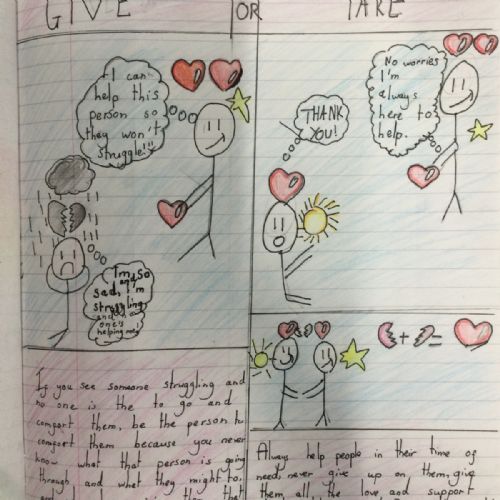 GIVE OR TAKE
I can
help this
person so
they won't
struggle!!
I'm so
and
sad, I'm
struggling
and no
one's
helping me!
THANK
YOU!
No worries
I'm
always
here to
help.
+ =
If you see someone struggling and
no one is the to go and
comfort them, be the person to
comfort them because you never
know what that person is going
through and what they might to,
that
Always help people in their time of
need, never give up on them, give
them all the love and support